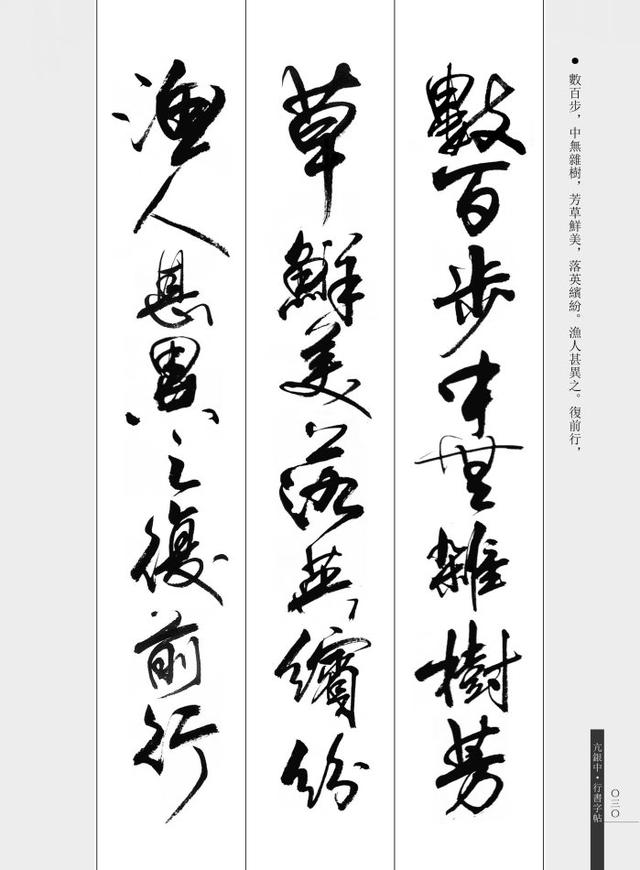 數百步，中無雜樹，芳草鮮美，落英繽紛。漁人甚異之。復前行，
數百步中無雜樹芳
草鮮美落英繽紛
漁人甚異之復前行
亢銀中·行書字帖
〇三〇